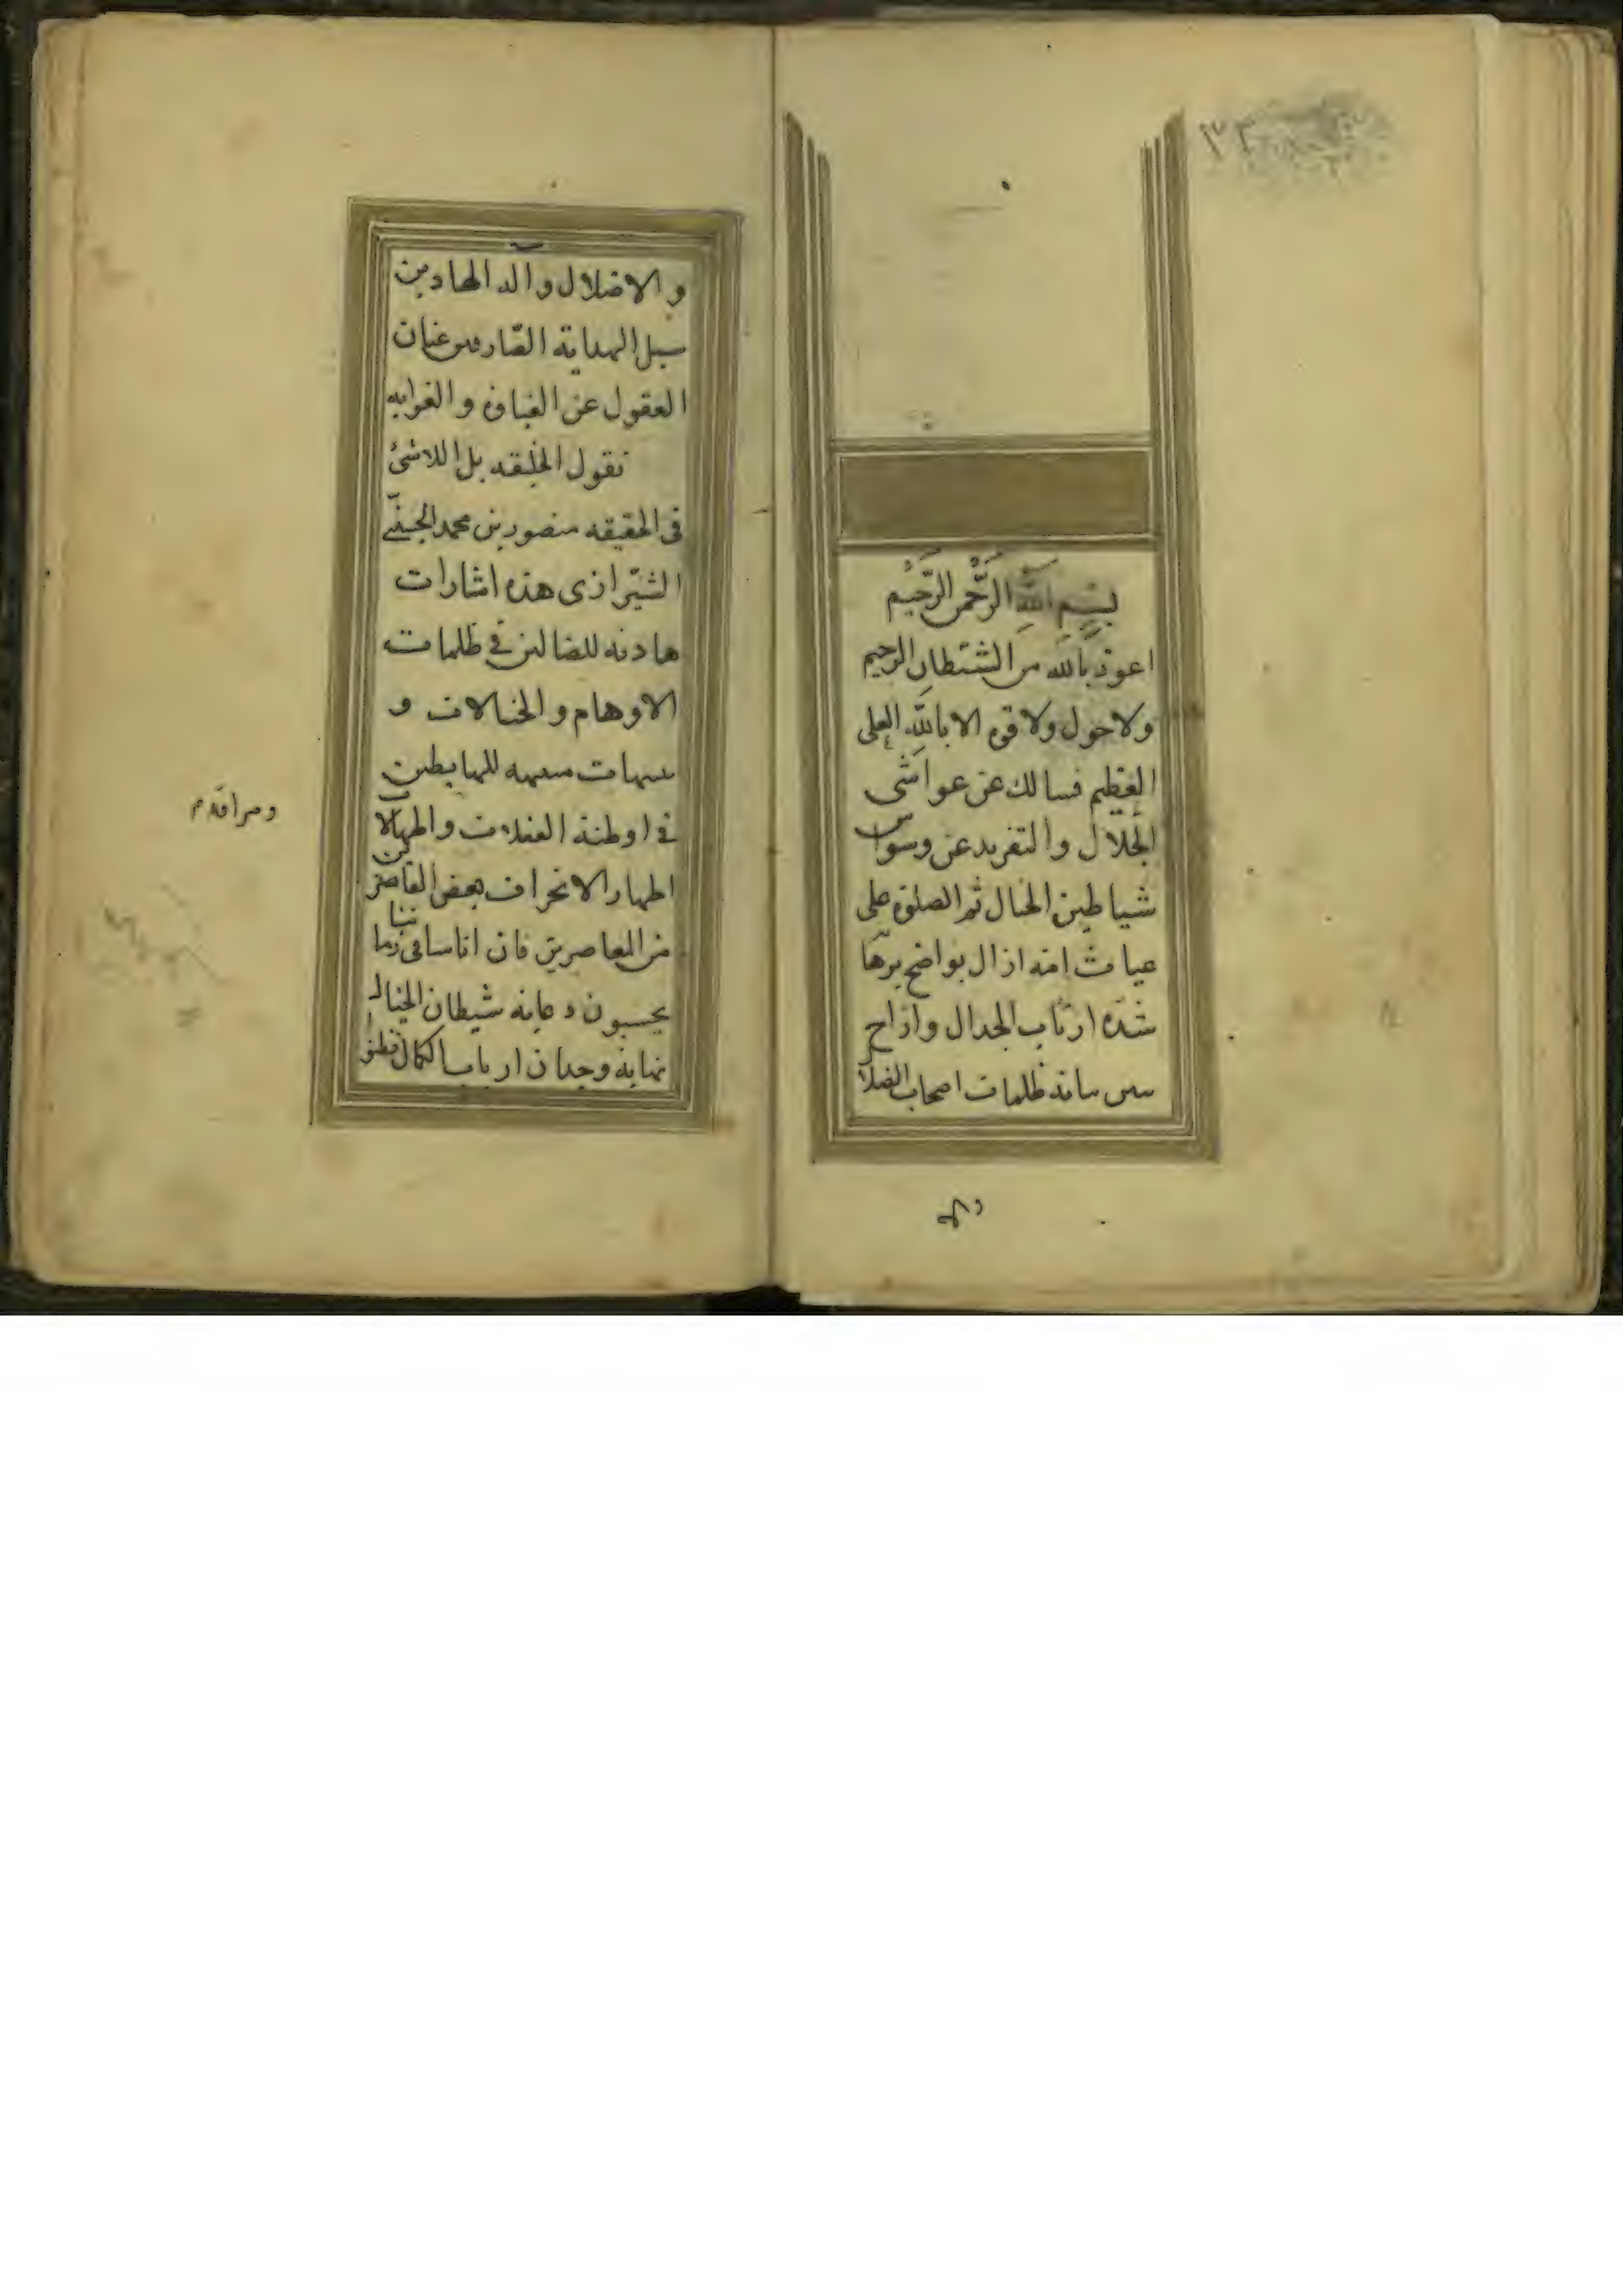 ٣٢
بِسْمِ اللَّهِ الرَّحْمنِ الرَّحِيْمِ
اعوذ بالله من الشيطان الرجيم
ولا حول ولا قوة الا بالله العلى
العظيم فسالك عن غواشى
الجلال والتفريد عن وسواس
شياطين الخيال ثم الصلوة على
غياث امته ازال بواضح برها
شده ارتاب الجدال وازاح
ظلمات اصحاب الضلا
والاضلال واله الهادين
سبل الهداية الصارفين عنان
العقول عن الغباوة والغوايه
نقول الخليقه بل اللاشئ
فى الحقيقه منصور بن محمد الحسينى
الشيرازى هذه اشارات
هادية للضالين فى ظلمات
الاوهام والخيالات و
تنبيهات منبهه للهابطين
فى اودية الغفلات والجهالات
اظهار الانحراف بعض القاصرين
من المعاصرين فان اناسا فى زماننا
يحسبون دعابه شيطان الخيال
نهاية وجدان ارباب الكمال فظنوا